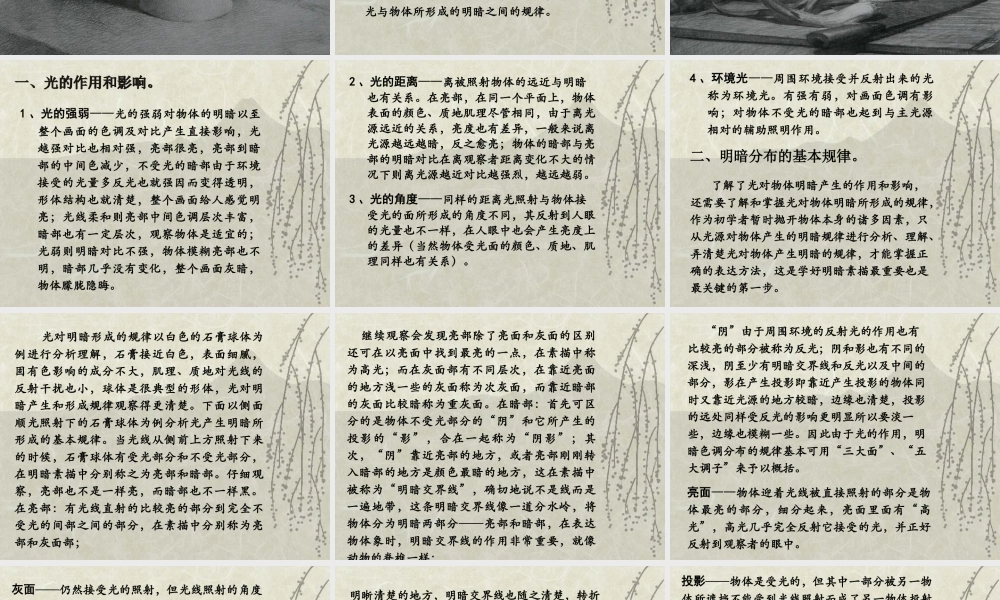 光与物体所形成的明暗之间的规律。
一、光的作用和影响。
1、光的强弱——光的强弱对物体的明暗以至
整个画面的色调及对比产生直接影响，光
越强对比也相对强，亮部很亮，亮部到暗
部的中间色减少，不受光的暗部由于环境
接受的光量多反光也就强因而变得透明，
形体结构也就清楚，整个画面给人感觉明
亮；光线柔和则亮部中间色调层次丰富，
暗部也有一定层次，观察物体是适宜的；
光弱则明暗对比不强，物体模糊亮部也不
明，暗部几乎没有变化，整个画面灰暗，
物体朦胧隐晦。
2、光的距离——离被照射物体的远近与明暗
也有关系。在亮部，在同一个平面上，物体
表面的颜色、质地肌理尽管相同，由于离光
源远近的关系，亮度也有差异，一般来说离
光源越远越暗，反之愈亮；物体的暗部与亮
部的明暗对比在离观察者距离变化不大的情
况下则离光源越近对比越强烈，越远越弱。
3、光的角度——同样的距离光照射与物体接
受光的面所形成的角度不同，其反射到人眼
的光量也不一样，在人眼中也会产生亮度上
的差异（当然物体受光面的颜色、质地、肌
理同样也有关系）。
4、环境光——周围环境接受并反射出来的光
称为环境光。有强有弱，对画面色调有影
响；对物体不受光的暗部也起到与主光源
相对的辅助照明作用。
二、明暗分布的基本规律。
了解了光对物体明暗产生的作用和影响，
还需要了解和掌握光对物体明暗所形成的规律，
作为初学者暂时抛开物体本身的诸多因素，只
从光源对物体产生的明暗规律进行分析、理解、
弄清楚光对物体产生明暗的规律，才能掌握正
确的表达方法，这是学好明暗素描最重要也是
最关键的第一步。
光对明暗形成的规律以白色的石膏球体为
例进行分析理解，石膏接近白色，表面细腻，
固有色影响的成分不大，肌理、质地对光线的
反射干扰也小，球体是很典型的形体，光对明
暗产生和形成规律观察得更清楚。下面以侧面
顺光照射下的石膏球体为例分析光产生明暗所
形成的基本规律。当光线从侧前上方照射下来
的时候，石膏球体有受光部分和不受光部分，
在明暗素描中分别称之为亮部和暗部。仔细观
察，亮部也不是一样亮，而暗部也不一样黑。
在亮部：有光线直射的比较亮的部分到完全不
受光的间部之间的部分，在素描中分别称为亮
部和灰面部；
继续观察会发现亮部除了亮面和灰面的区别
还可在以亮面中找到最亮的一点，在素描中称
为高光；而在灰面部有不同层次，在靠近亮面
的地方浅一些的灰面称为次灰面，而靠近暗部
的灰面比较暗称为重灰面。在暗部：首先可区
分的是物体不受光部分的“阴”和它所产生的
投影的“影”，合在一起称为“阴影”；其
次，“阴”靠近亮部的地方，或者亮部刚刚转
入暗部的地方是颜色最暗的地方，这在素描中
被称为“明暗交界线”，确切地说不是线而是
一遍地带，这条明暗交界线像一道分水岭，将
物体分为明暗两部分——亮部和暗部，在表达
物体象时，明暗交界线的作用非常重要，就像
动物的脊椎一样；
“阴”由于周围环境的反射光的作用也有
比较亮的部分被称为反光；阴和影也有不同的
深浅，阴至少有明暗交界线和反光以及中间的
部分，影在产生投影即靠近产生投影的物体同
时又靠近光源的地方较暗，边缘也清楚，投影
的远处同样受反光的影响更明显所以要浅一
些，边缘也模糊一些。因此由于光的作用，明
暗色调分布的规律基本可用“三大面”、“五
大调子”来予以概括。
亮面——物体迎着光线被直接照射的部分是物
体最亮的部分，细分起来，亮面里面有“高
光”，高光几乎完全反射它接受的光，并正好
反射到观察者的眼中。
灰面——仍然接受光的照射，但光线照射的角度
明晰清楚的地方，明暗交界线也随之清楚，转折
投影——物体是受光的，但其中一部分被另一物
体所遮挡不能受到光线照射而成了另一物体投射